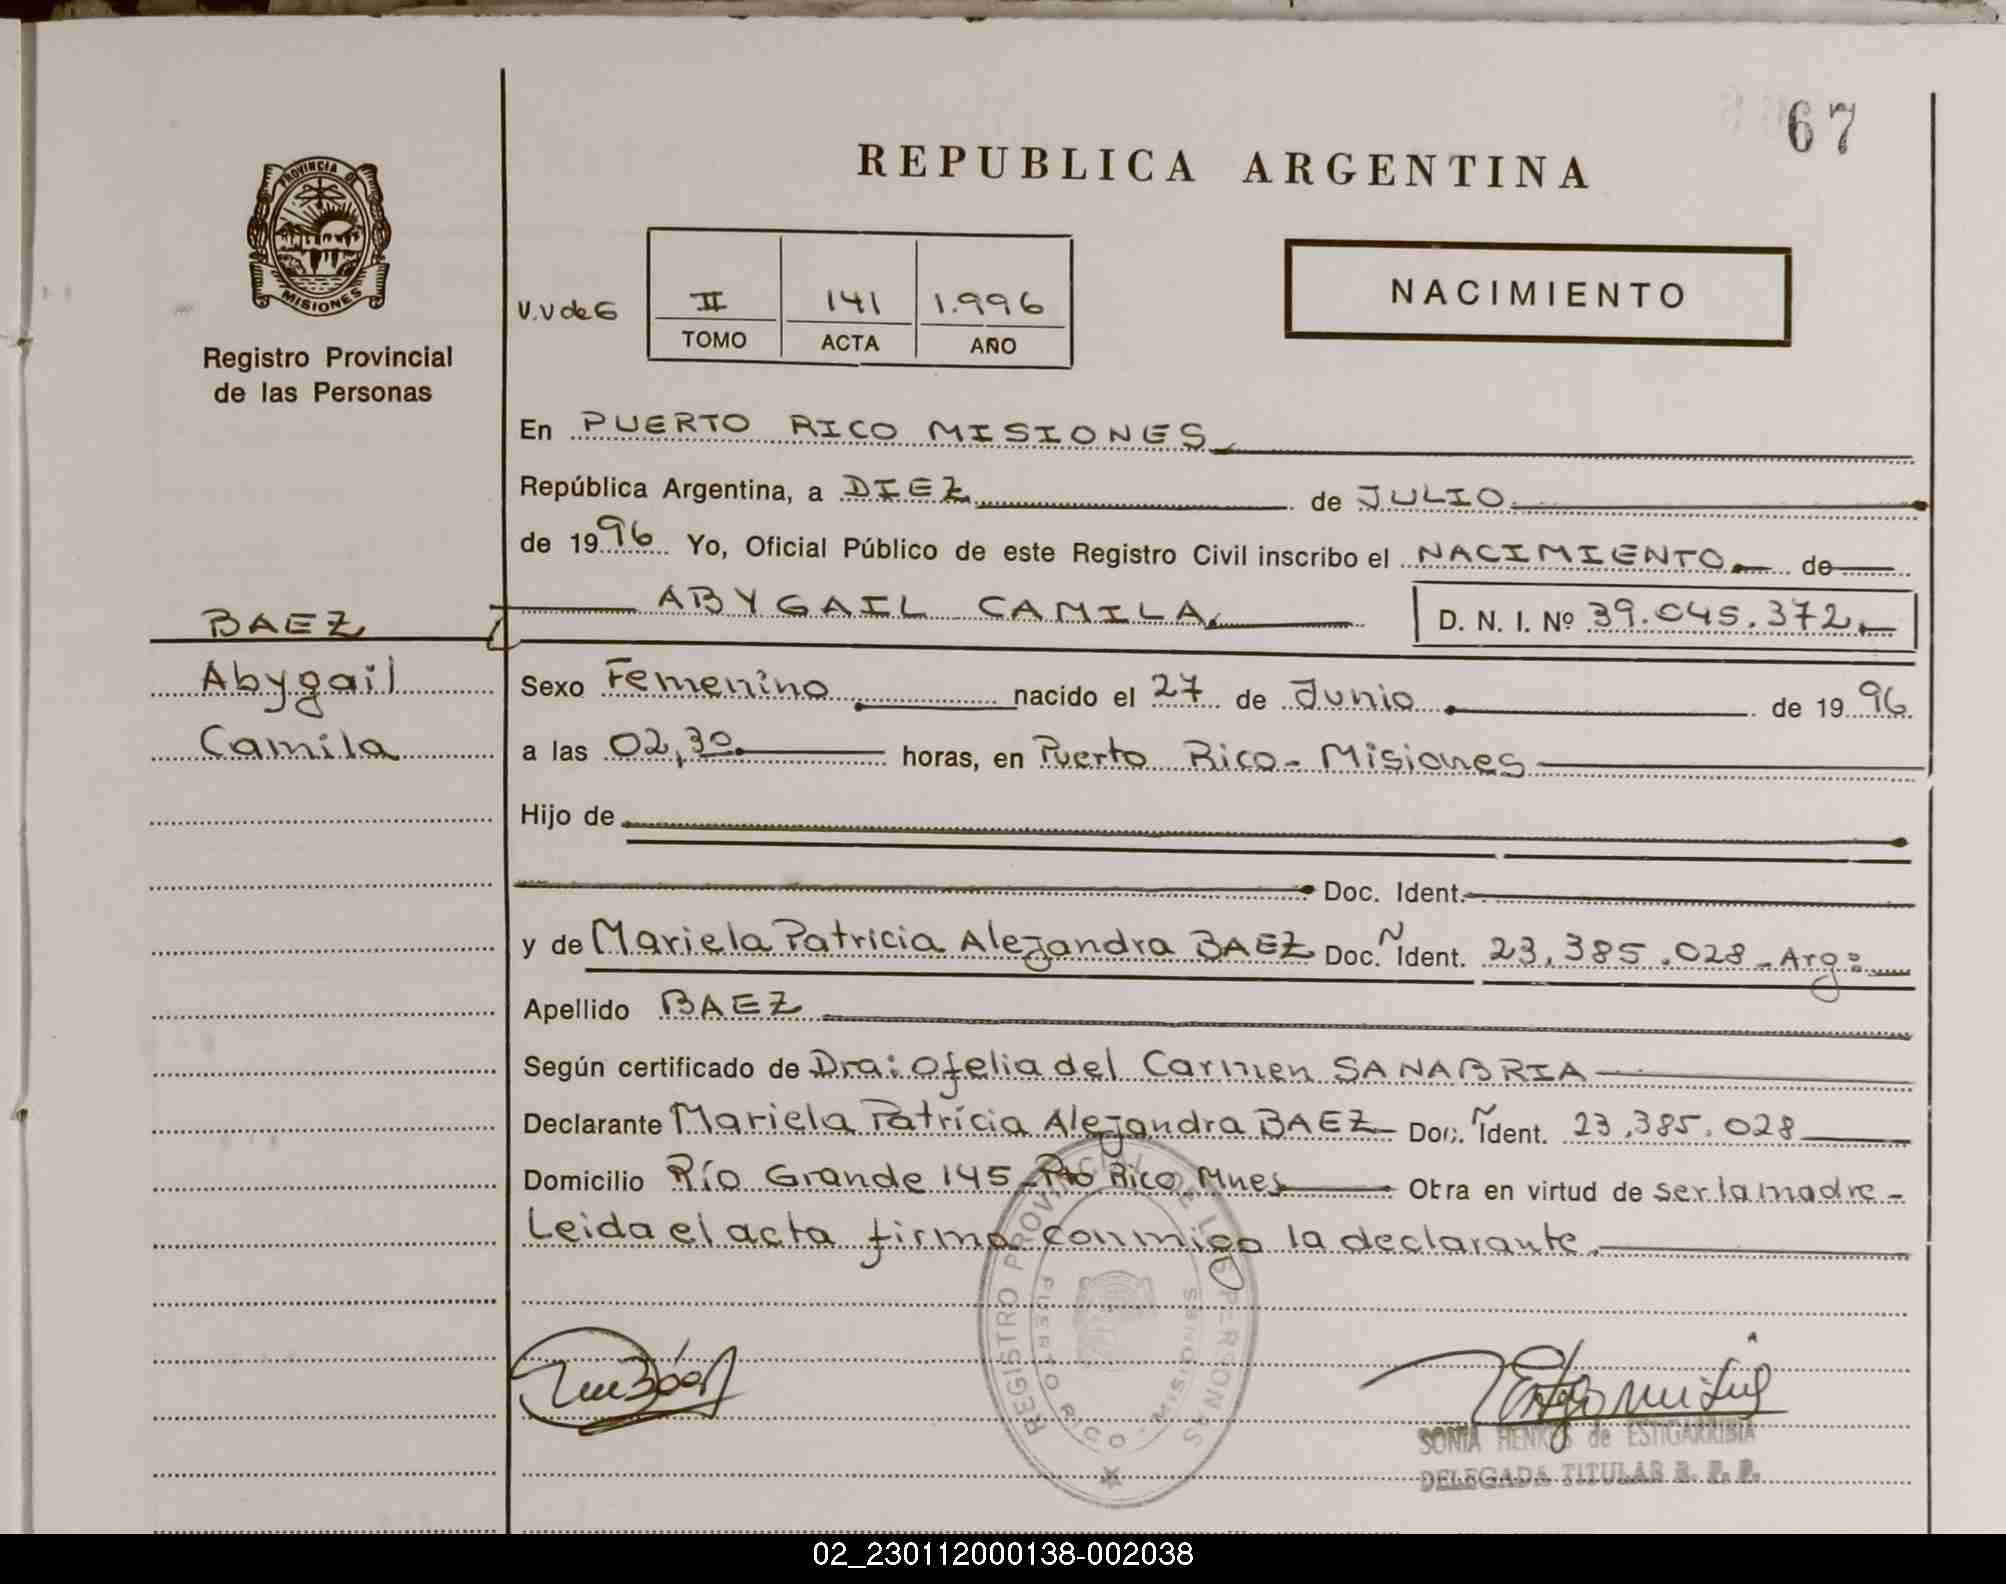 67
REPUBLICA ARGENTINA
PROVINCIA DE
MISIONES
Registro Provincial
de las Personas
NACIMIENTO
V.V de G
II 141 1.996
TOMO ACTA AÑO
En PUERTO RICO MISIONES
República Argentina, a DIEZ de JULIO
de 1996 Yo, Oficial Público de este Registro Civil inscribo el NACIMIENTO de
BAEZ
Abygail
Camila
ABYGAIL CAMILA. D. N. I. Nº 39.045.372.
Sexo Femenino nacido el 27 de Junio de 1996
a las 02,30. horas, en Puerto Rico - Misiones
Hijo de
Doc. Ident.
y de Mariela Patricia Alejandra BAEZ Doc. Ñ Ident. 23.385.028 - Arg:
Apellido BAEZ
Según certificado de Dra: Ofelia del Carmen SANABRIA
Declarante Mariela Patricia Alejandra BAEZ Doc. Ñ Ident. 23.385.028
Domicilio Río Grande 145 - Pto Rico Mnes Obra en virtud de ser la madre -
Leida el acta firma conmigo la declarante.
REGISTRO PROVINCIAL DE LAS PERSONAS
PUERTO RICO - MISIONES
SONIA HENKES de ESTIGARRIBIA
DELEGADA TITULAR R. P. P.
02_230112000138-002038